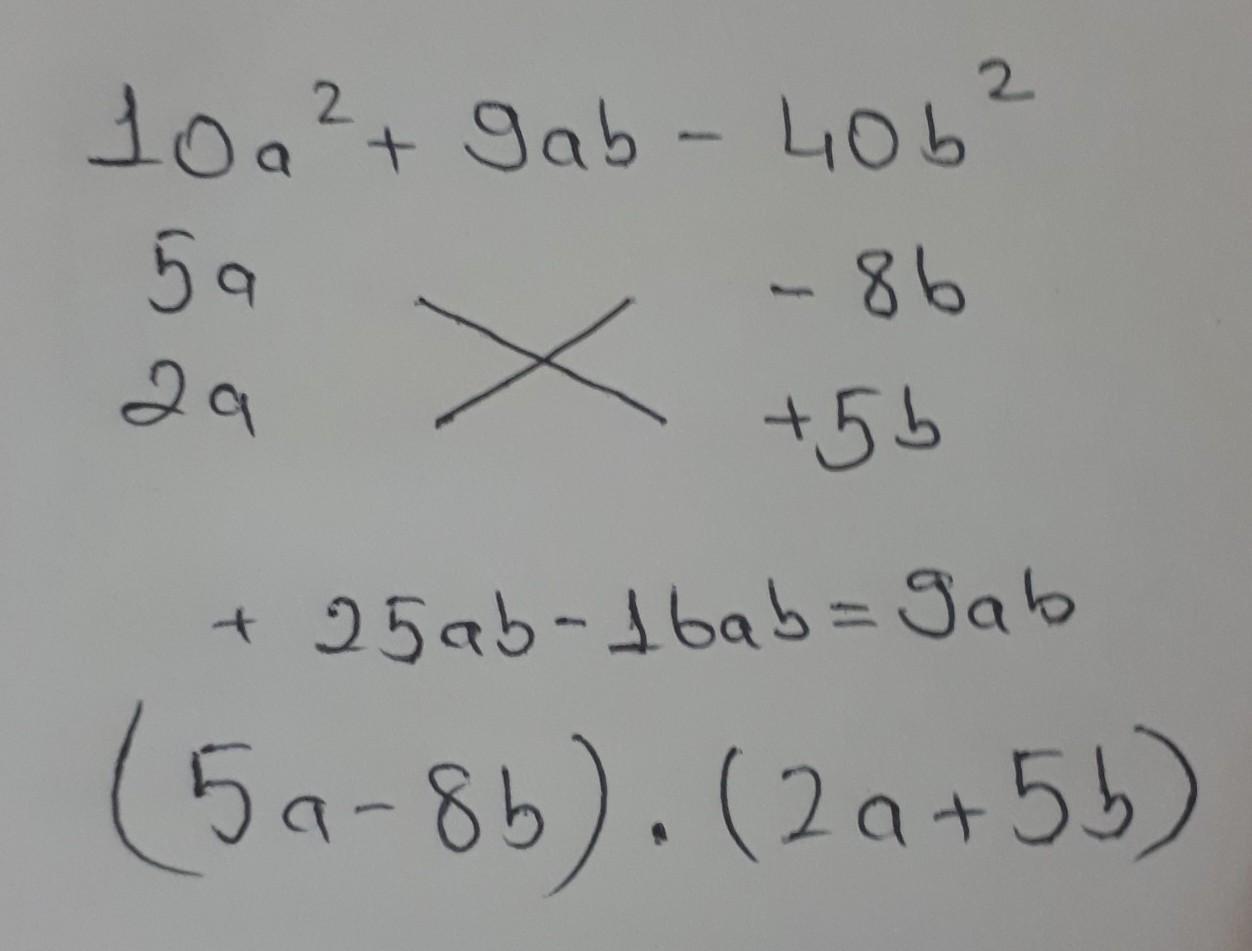 10a² + 9ab - 40b²
5a - 8b
2a +5b
+ 25ab - 16ab = 9ab
(5a - 8b) . (2a + 5b)